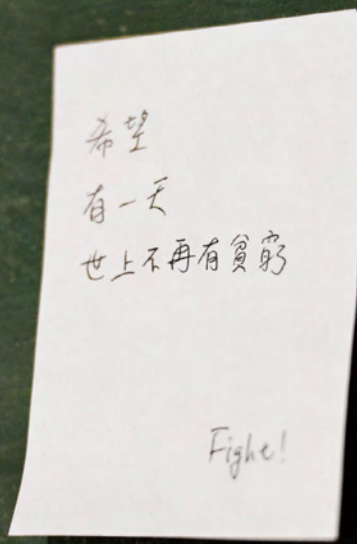 希望
有一天
世上不再有貧窮
Fight!